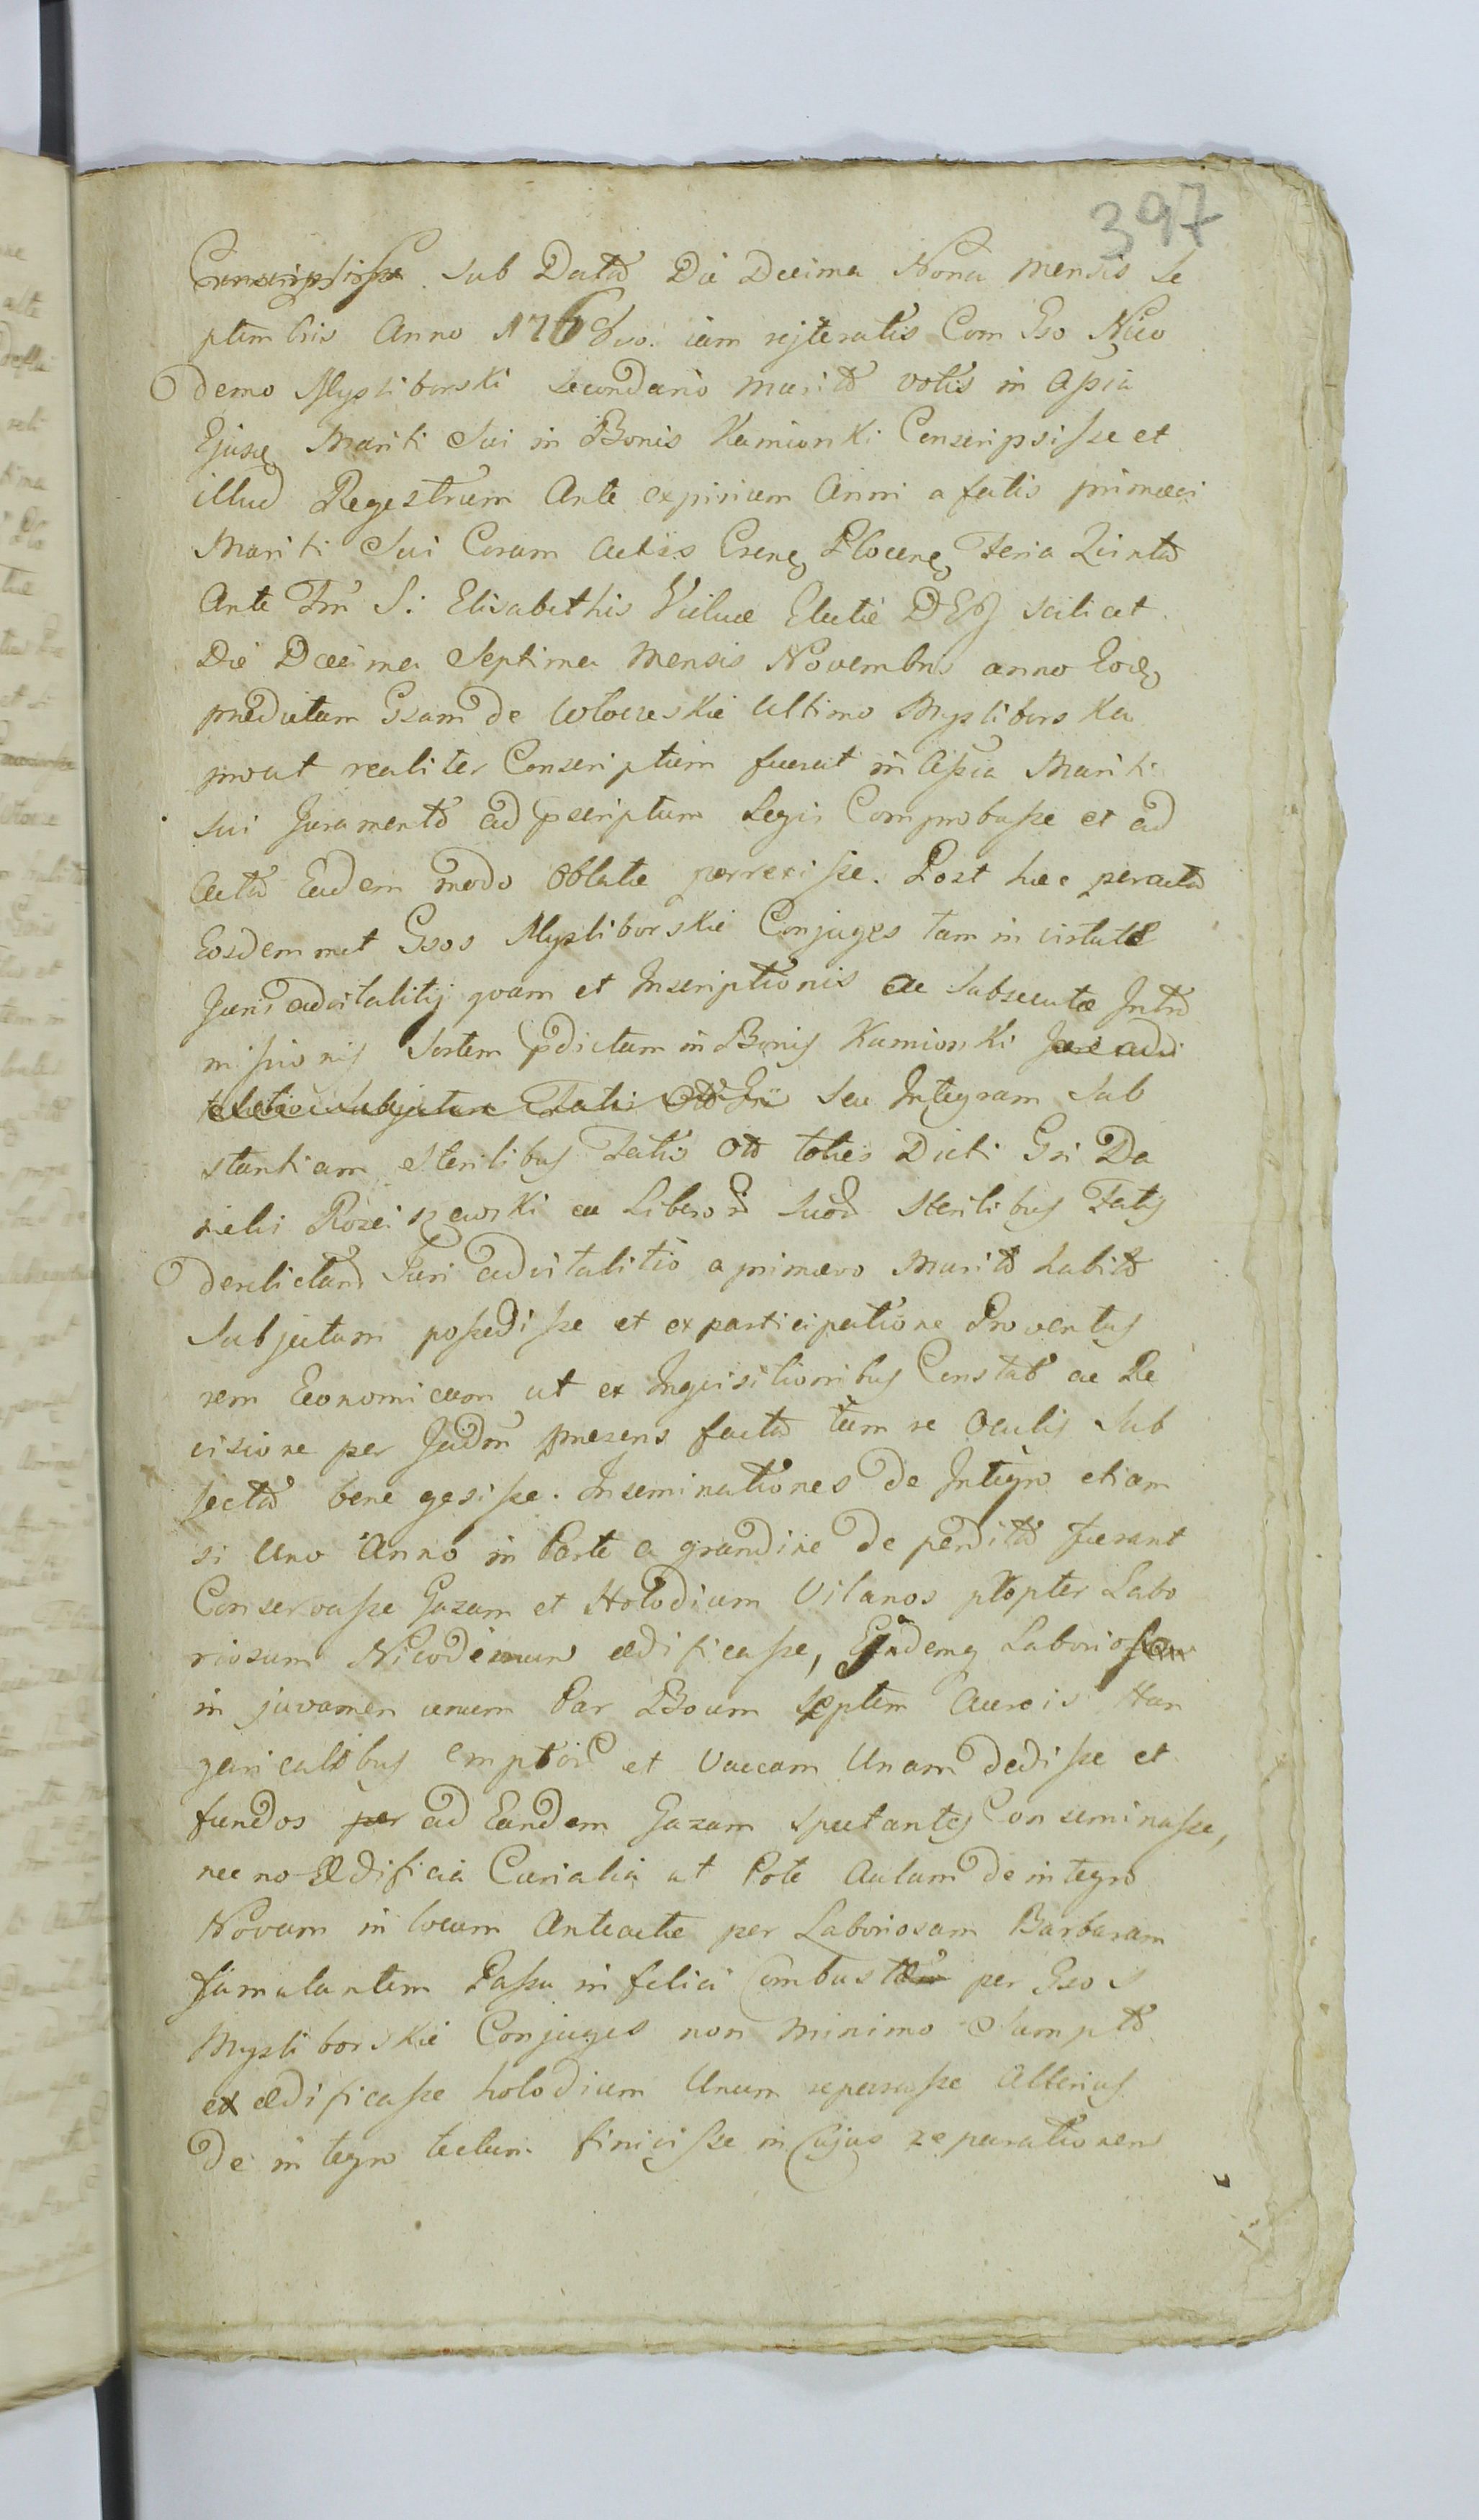 397
Conscripsisse sub Data Die Decima Nona mensis Se
ptembris Anno 1768vo. iam rejteratis Com Gso Nico
demo Mysliborski Secundario Marito votis in Assia
Ejusq Mariti Sui in Bonis Kamionki Conscripsisse et
illud Regestrum Ante expirium Anni a fatis primævi
Mariti Sui Coram Actis Plocen Feria Quinta
Ante Fm S: Elisabethis Viduæ Electæ scilicet
Die Decima Septima Mensis Novembris anno Eod
prædictam Gsam de Wloczeskie Ultimo Mysliborska
prout realiter Conscriptum fuerat in Assia Mariti
sui Juramento ad pscriptum Legis Comprobasse et ad
Acta Eadem modo Oblatæ porrexisse. Post hæc peracta
Eosdemmet Gsos Mysliborskie Conjuges tam in virtute
Juris advitalitij qvam et Inscriptionis ac Subsecutæ Intro
missionis Sortem pdictam in Bonis Kamionki Jure advi
subjectam Fatis seu Integram Sub
stantiam sterilibus Fatis Otd toties Dicti Gsi Da
nielis Rosciszewski ea Liberor Suor Sterilibus Fatis
derelictam Juri advitalitio a primævo Marito habito
Subjectam possedisse et ex participatione Proventus
rem Economicam ut ex Inqvisitionibus Constat ac Re
visione per Judm præsens facta tum re Oculis Sub
jecta bene gesisse. Inseminationes de Integro etiam
si Uno Anno in Parte a grandine de perdita fuerant
Conservasse Gazam et Holodium Vilanos propter Labo
riosum Nicodemum ædificasse, Ejndemq Laboriosum
in juvamen unum Par Boum Septem Aureis Hun
garicalibus emptor et Vaccam Unam dedisse et
fundos per ad Eandem Gazam spectantes Conseminasse,
nec no Ædificia Curialia ut Pote Aulam de integro
Novam in locum Anteactæ per Laboriosam Barbaram
famulantem Passu infelici Combustæ per Gsos
Mysliborskie Conjuges non minimo Sumpto
ex ædificasse holodium Unum reparasse Alterius
de integro tectum finiisse in Cujus reparationem